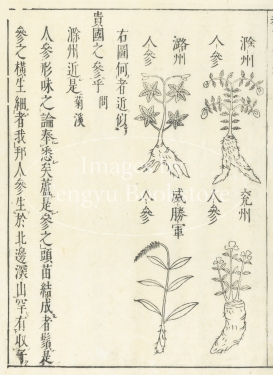 滁州
人參
兗州
人參
潞州
人參
威勝軍
人參
右圖何者近似
貴國之參乎 問
滁州近是 菊溪
人參形味之論奉悉矣蘆是參之頭苗結成者鬚是
參之橫生細者我邦人參生於北邊深山罕有収子